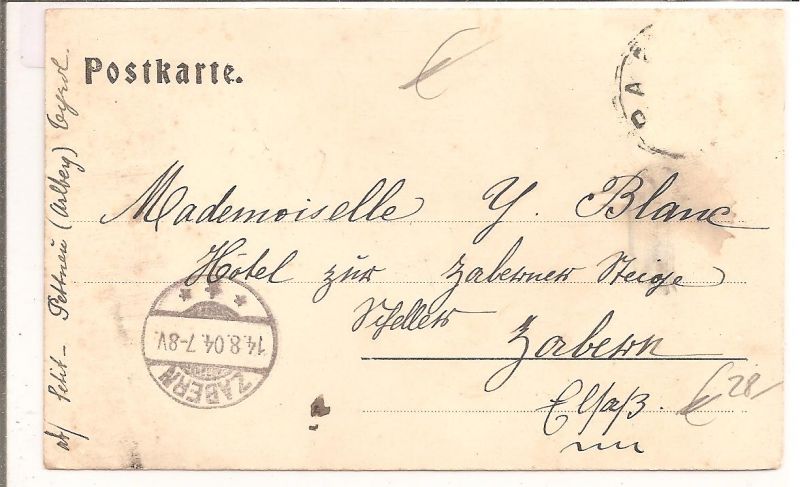 Postkarte.
Mademoiselle Y. Blanc
Hôtel zur Zaberner Steige
Scheller
Zabern
Elsaß.
ZABERN
14.8.04. 7-8V.
Petit - Pettneu (Arlberg) Tyrol
28